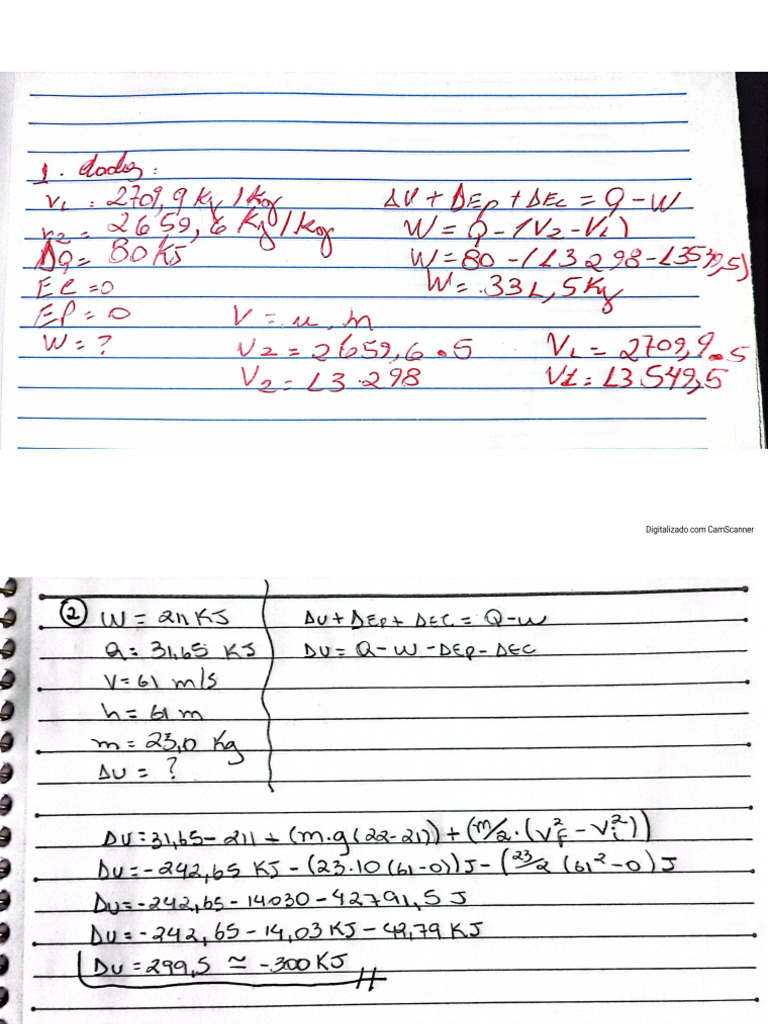 1. dados:
V1 = 2709,9 Kg/kg
V2 = 2659,6 Kg/kg
ΔQ = 80 KJ
EC = 0
EP = 0
W = ?
ΔU + ΔEp + ΔEc = Q - W
W = Q - (V2 - V1)
W = 80 - (13298 - 13549,5)
W = 331,5 Kg
V = u, m
V2 = 2659,6 . 5
V2 = 13.298
V1 = 2709,9 . 5
V1 = 13.549,5
Digitalizado com CamScanner
2 W = 211 KJ
Q = 31,65 KJ
V = 61 m/s
h = 61 m
m = 23,0 Kg
ΔU = ?
ΔU + ΔEp + ΔEC = Q - W
ΔU = Q - W - ΔEp - ΔEC
ΔU = 31,65 - 211 + (m.g(22 - 21)) + (m/2 . (Vf² - Vi²))
ΔU = -242,65 KJ - (23.10(61-0))J - (23/2 (61² - 0)J
ΔU = -242,65 - 14030 - 42791,5 J
ΔU = -242,65 - 14,03 KJ - 42,79 KJ
ΔU = 299,5 ≃ -300 KJ